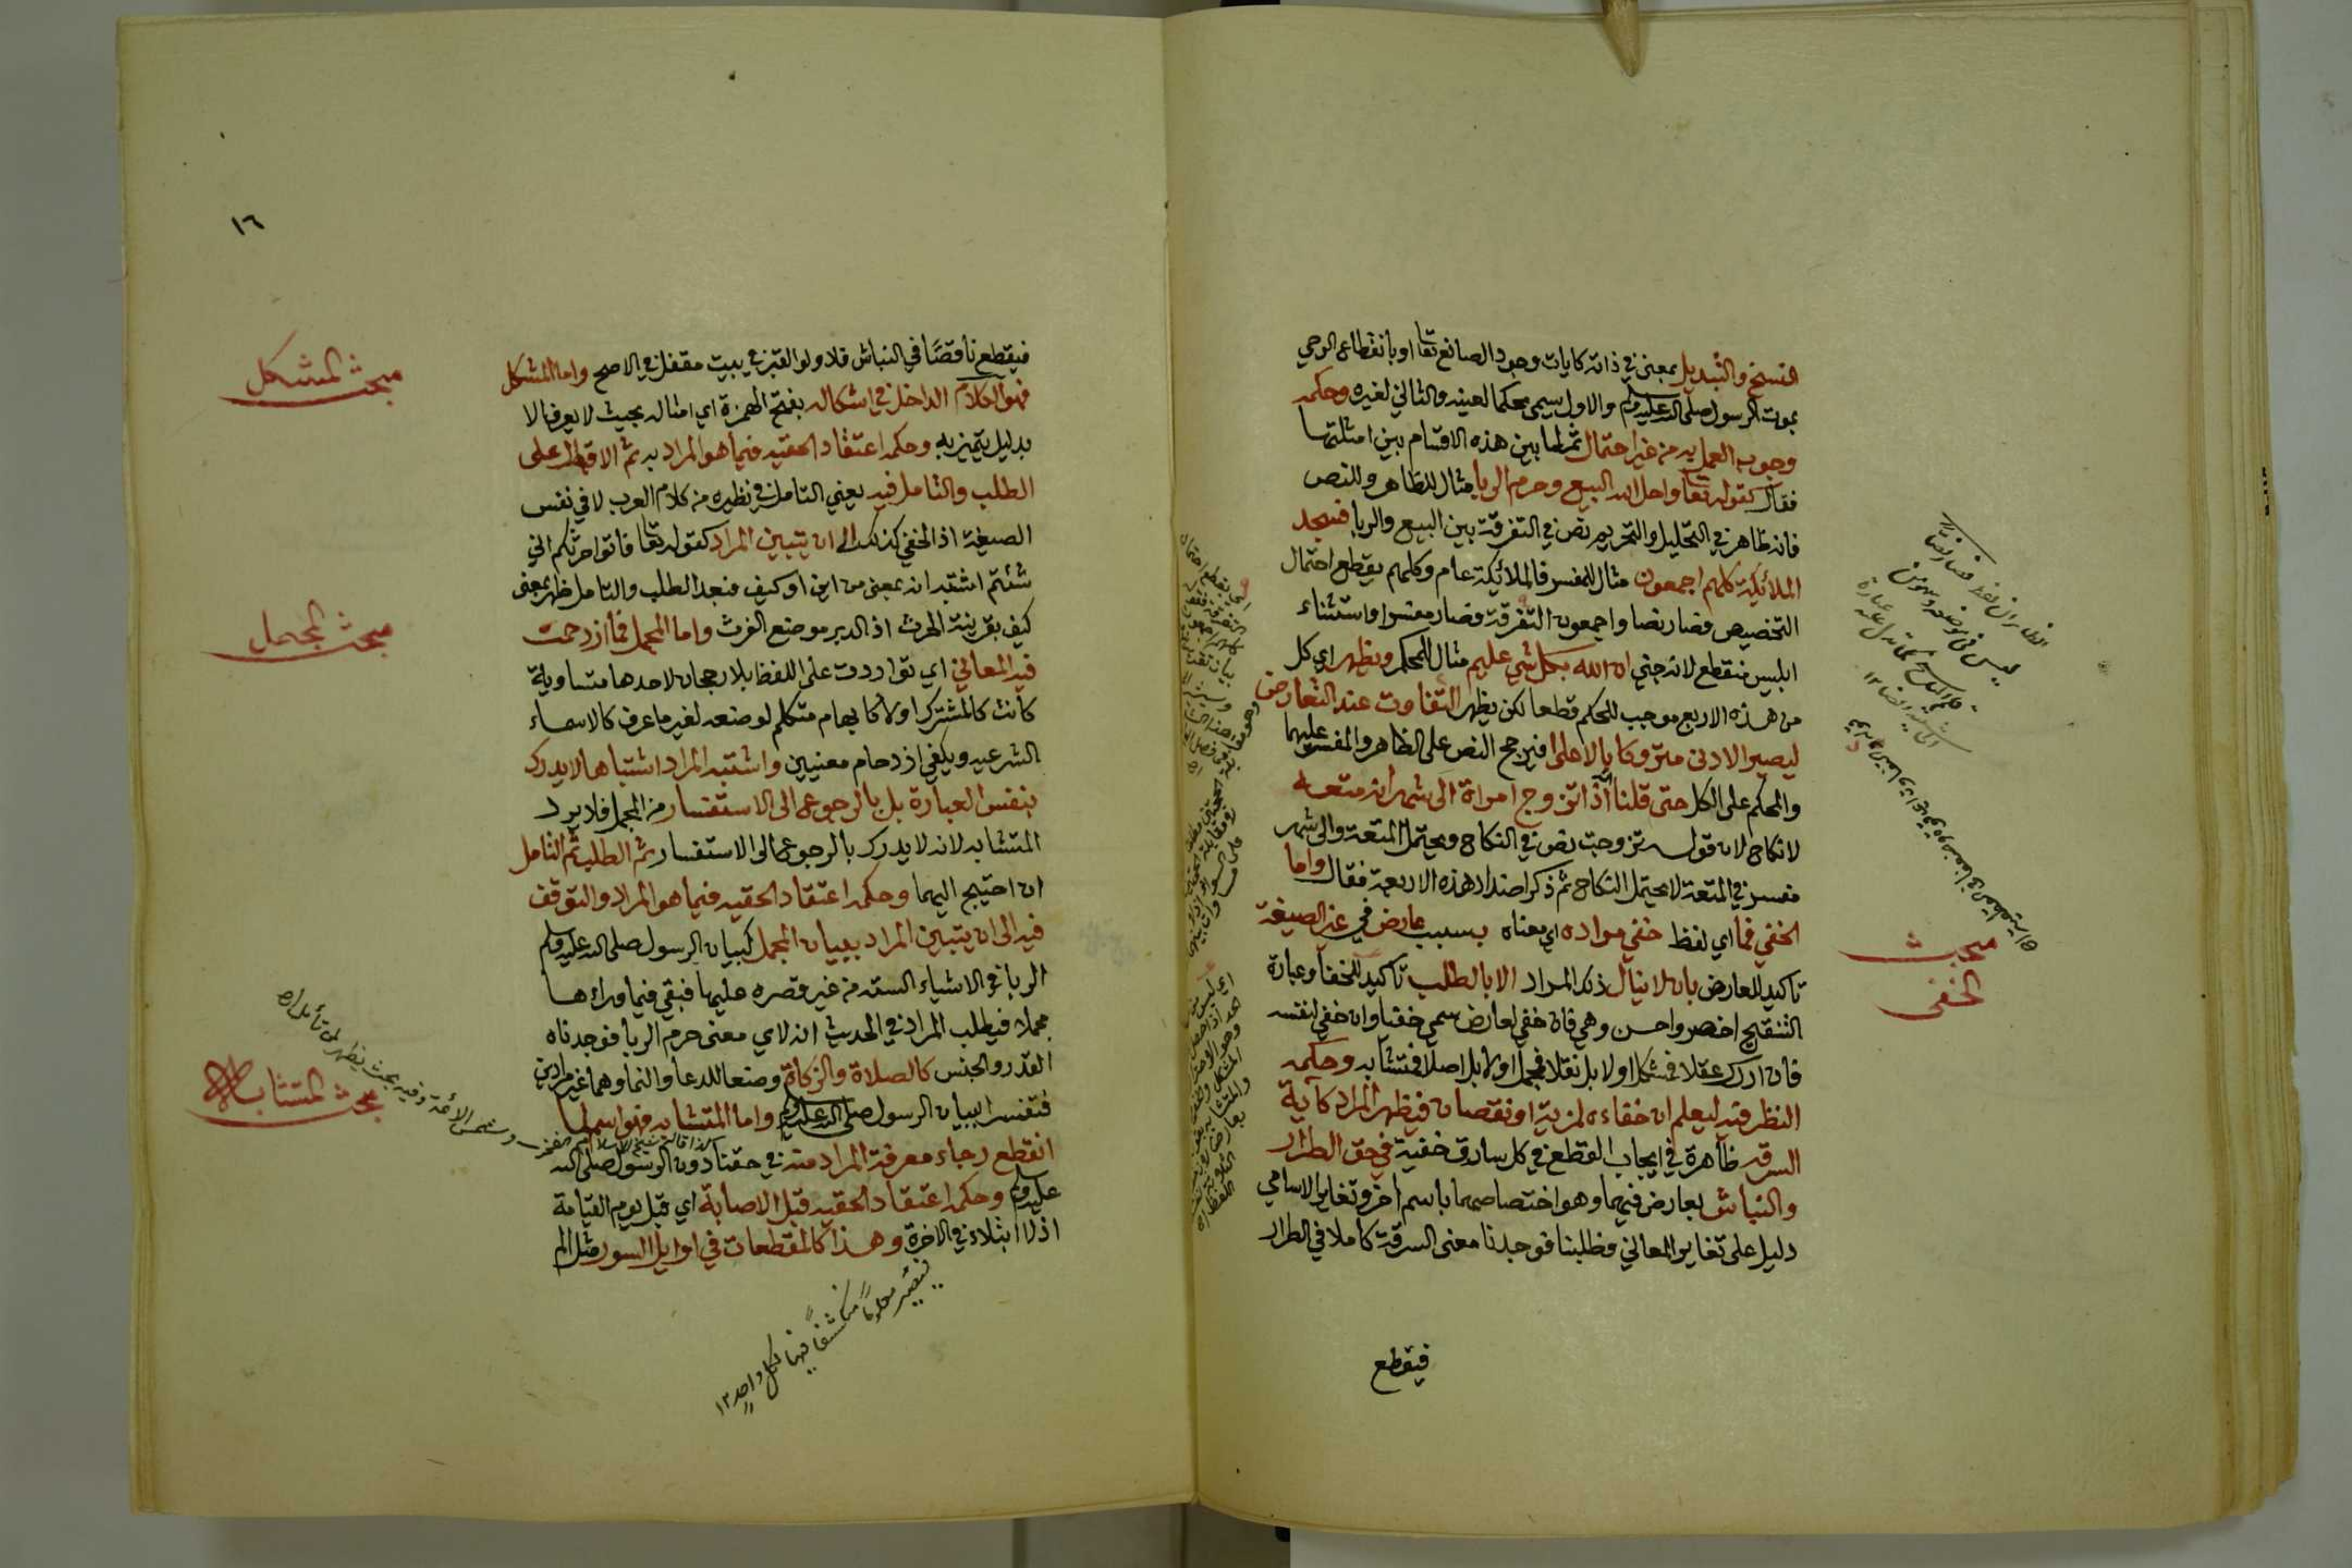 النسخ والتبديل بمعنى في ذاته كايات وجود الصانع تعا او بانقطاع الوحي
بموت الرسول صلى الله عليه وسلم والاول يسمى محكما لعينه والثاني لغيره وحكمه
وجوب العمل به من غير احتمال ثم لما بين هذه الاقسام بين امثلتها
فقال كقوله تعا واحل الله البيع وحرم الربا مثال للظاهر وللنص
فانه ظاهر في التحليل والتحريم نص في التفرقة بين البيع والربا فسجد
الملائكة كلهم اجمعون مثال للمفسر فالملائكة عام وكلهم يقطع احتمال
التخصيص فصار نصا واجمعون التفرقة فصار مفسرا واستثناء
ابليس منقطع لانه جني ان الله بكل شي عليم مثال للمحكم ويظهر اي كل
من هذه الاربع موجب للحكم قطعا لكن يظهر التفاوت عند التعارض
ليصير الادنى متروكا بالاعلى فيرجح النص على الظاهر والمفسر عليهما
والمحكم على الكل حتى قلنا اذا تزوج امراة الى شهر انه متعه
لا نكاح لان قوله تزوجت نص في النكاح ويحتمل المتعة والى شهر
مفسر في المتعة لا يحتمل النكاح ثم ذكر اضداد هذه الاربعة فقال واما
الخفي فما اي لفظ خفي مراده اي معناه بسبب عارض في غير الصيغة
تاكيد للعارض بان لا ينال ذلك المراد الا بالطلب تاكيد للخفا وعبارة
التنقيح اخصر واحسن وهي فان خفي لعارض سمي خفيا وان خفي لنفسه
فان ادرك عقلا فمشكل اولا بل نقلا فمجمل اولا بل اصلا فمتشابه وحكمه
النظر فيه ليعلم ان خفاءه لمزية او نقصان فيظهر المراد كآية
السرقه ظاهرة في ايجاب القطع في كل سارق خفية في حق الطرار
والنباش بعارض فيهما وهو اختصاصهما باسم اخر وتغاير الاسامي
دليل على تغاير المعاني فطلبنا فوجدنا معنى السرقة كاملا في الطرار
فيقطع
مبحث
الخفي
١٦
فيقطع ناقصًا في النباش فلا ولو القبر في بيت مقفل في الاصح واما المشكل
فهو الكلام الداخل في اشكاله بفتح الهمزة اي امثاله بحيث لا يعرف الا
بدليل يتميز به وحكمه اعتقاد الحقيه فيما هو المراد به ثم الاقبال على
الطلب والتامل فيه يعني التامل في نظيره من كلام العرب لا في نفس
الصيغة اذ الخفي كذلك الى ان يتبين المراد كقوله تعا فاتوا حرثكم انى
شئتم اشتبه انه بمعنى من اين او كيف فبعد الطلب والتامل ظهر بمعنى
كيف بقرينة الحرث اذ الدبر موضع الفرث واما المجمل فما ازدحمت
فيه المعاني اي تواردت على اللفظ بلا رجحان لاحدها متساوية
كانت كالمشترك اولا كابهام متكلم لوضعه لغير ما عرف كالاسماء
الشرعيه ويكفي ازدحام معنيين واشتبه المراد اشتباها لا يدرك
بنفس العبارة بل بالرجوع الى الاستفسار من المجمل فلا يرد
المتشابه لانه لا يدرك بالرجوع الى الاستفسار ثم الطلب ثم التامل
ان احتيج اليهما وحكمه اعتقاد الحقيه فيما هو المراد والتوقف
فيه الى ان يتبين المراد ببيان المجمل كبيان الرسول صلى الله عليه وسلم
الربا في الاشياء الستة من غير قصره عليها فبقي فيما وراءها
مجملا فيطلب المراد في الحديث انه لاي معنى حرم الربا فوجدناه
القدر والجنس كالصلاة والزكاة وضعا للدعا والنما وهما غير مرادين
فتفسر ببيان الرسول صلى الله عليه وسلم واما المتشابه فهو اسم لما
انقطع رجاء معرفة المراد منه في حقنا دون الرسول صلى الله
عليه وسلم وحكمه اعتقاد الحقيه قبل الاصابة اي قبل يوم القيامة
اذ لا ابتلاء في الاخرة وهذا كالمقطعات في اوايل السور مثل الم
مبحث المشكل
مبحث المجمل
مبحث المتشابه
وشمس الائمة وفيه بحث يظهر لمن تأمل اه
فيصير معلوماً منكشفاً فيها لكل واحد ١٢